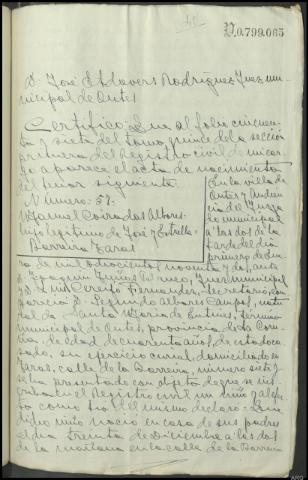 D. José Esclavers Rodriguez Juez mu-
nicipal de Outes
Certifico: Que al folio cincuen-
ta y siete del tomo quince de la sección
primera del Registro civil de mi car-
go aparece el acta de nacimiento
del tenor siguiente
Numero = 57:
Manuel Coira dos Albores
hijo legitimo de José y Estrella =
Barreira Taras
En la villa de
Outes y Audien-
cia del Juzga
do municipal
a las dos de la
tarde del dia
primero de Ene-
ro de mil ochocientos noventa y dos, ante
D. Joaquin Juez municipal
y D. Luis Cerejo Fernandez, Secretario, com-
pareció D. Segundo Albores Campos, natu
ral de Santa Maria de Entines, termino
municipal de Outes, provincia de la Coru-
ña, de edad de cuarenta años, de estado ca
sado, su ejercicio curial, domiciliado en
calle de la Barreira, numero siete y
se ha presentado con objeto de que se ins
criba en el Registro civil un niño y al efec
to como tio del mismo declaro: Que
dicho niño nacio en casa de sus padres
el dia treinta de Diciembre a las dos
de la mañana en la calle de la Barreira